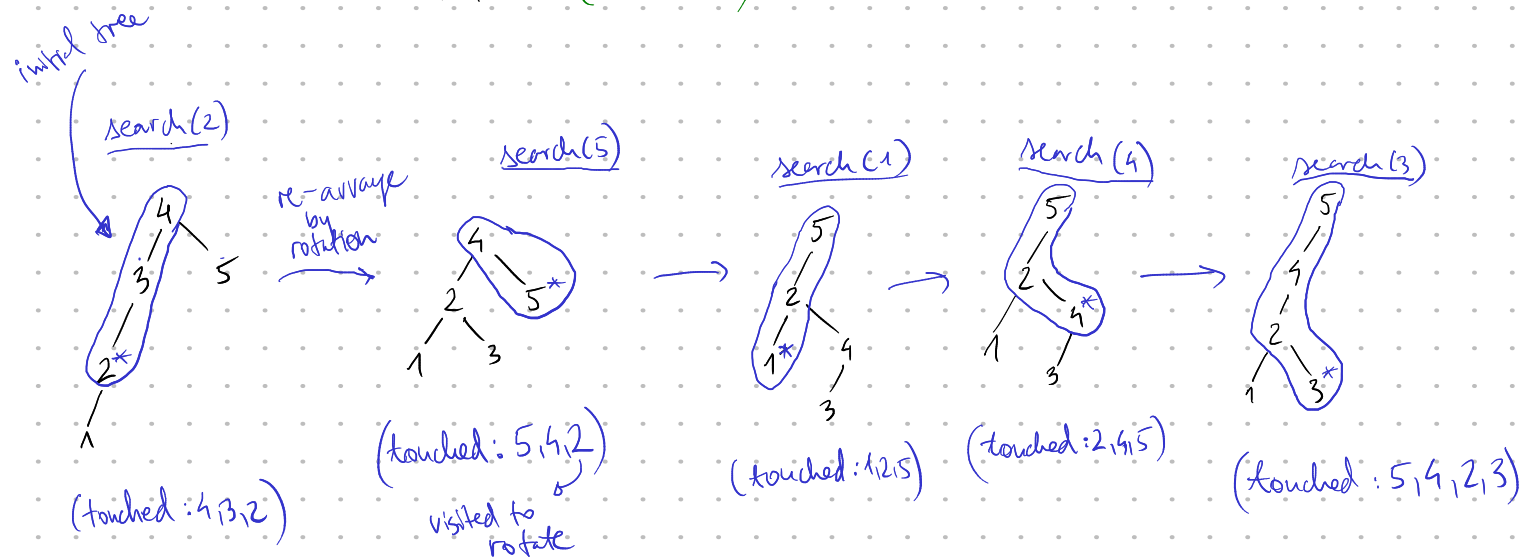 initial tree
search(2)
4
3
5
2*
1
(touched: 4,3,2)
re-arrange
by
rotation
search(5)
4
2
5*
1
3
(touched: 5,4,2)
visited to
rotate
search(1)
5
2
1*
4
3
(touched: 1,2,5)
search(4)
5
2
4*
1
3
(touched: 2,4,5)
search(3)
5
4
2
1
3*
(touched: 5,4,2,3)